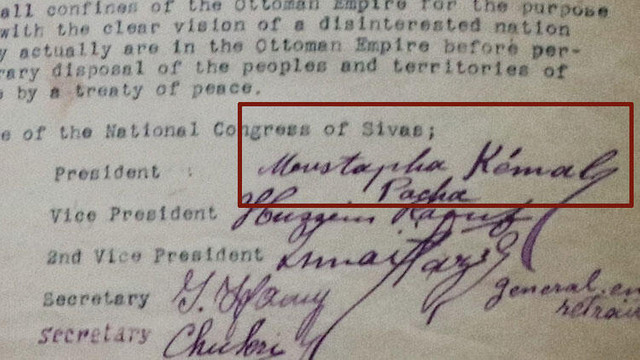 all confines of the Ottoman Empire for the purpose
with the clear vision of a disinterested nation
y actually are in the Ottoman Empire before per-
rary disposal of the peoples and territories of
s by a treaty of peace.
e of the National Congress of Sivas;
President : Moustapha Kémal
Pacha
Vice President Hussein Raouf
2nd Vice President Ismail Fazil
general en
retrai
Secretary I. Hamy
Secretary Chukri